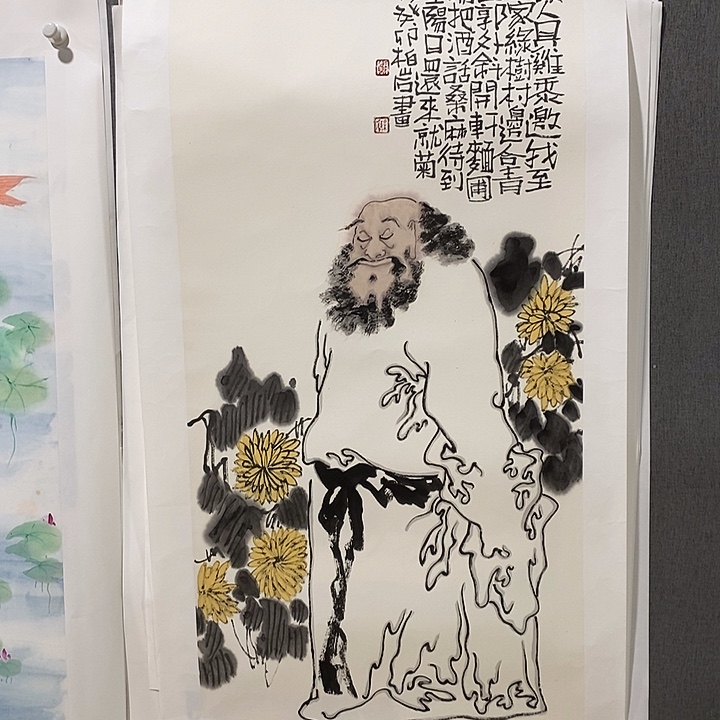 人具雞黍邀我至
家綠樹村邊合青
郭外斜開軒麵圃
把酒話桑麻待到
陽日還來就菊
癸卯柏岩畫